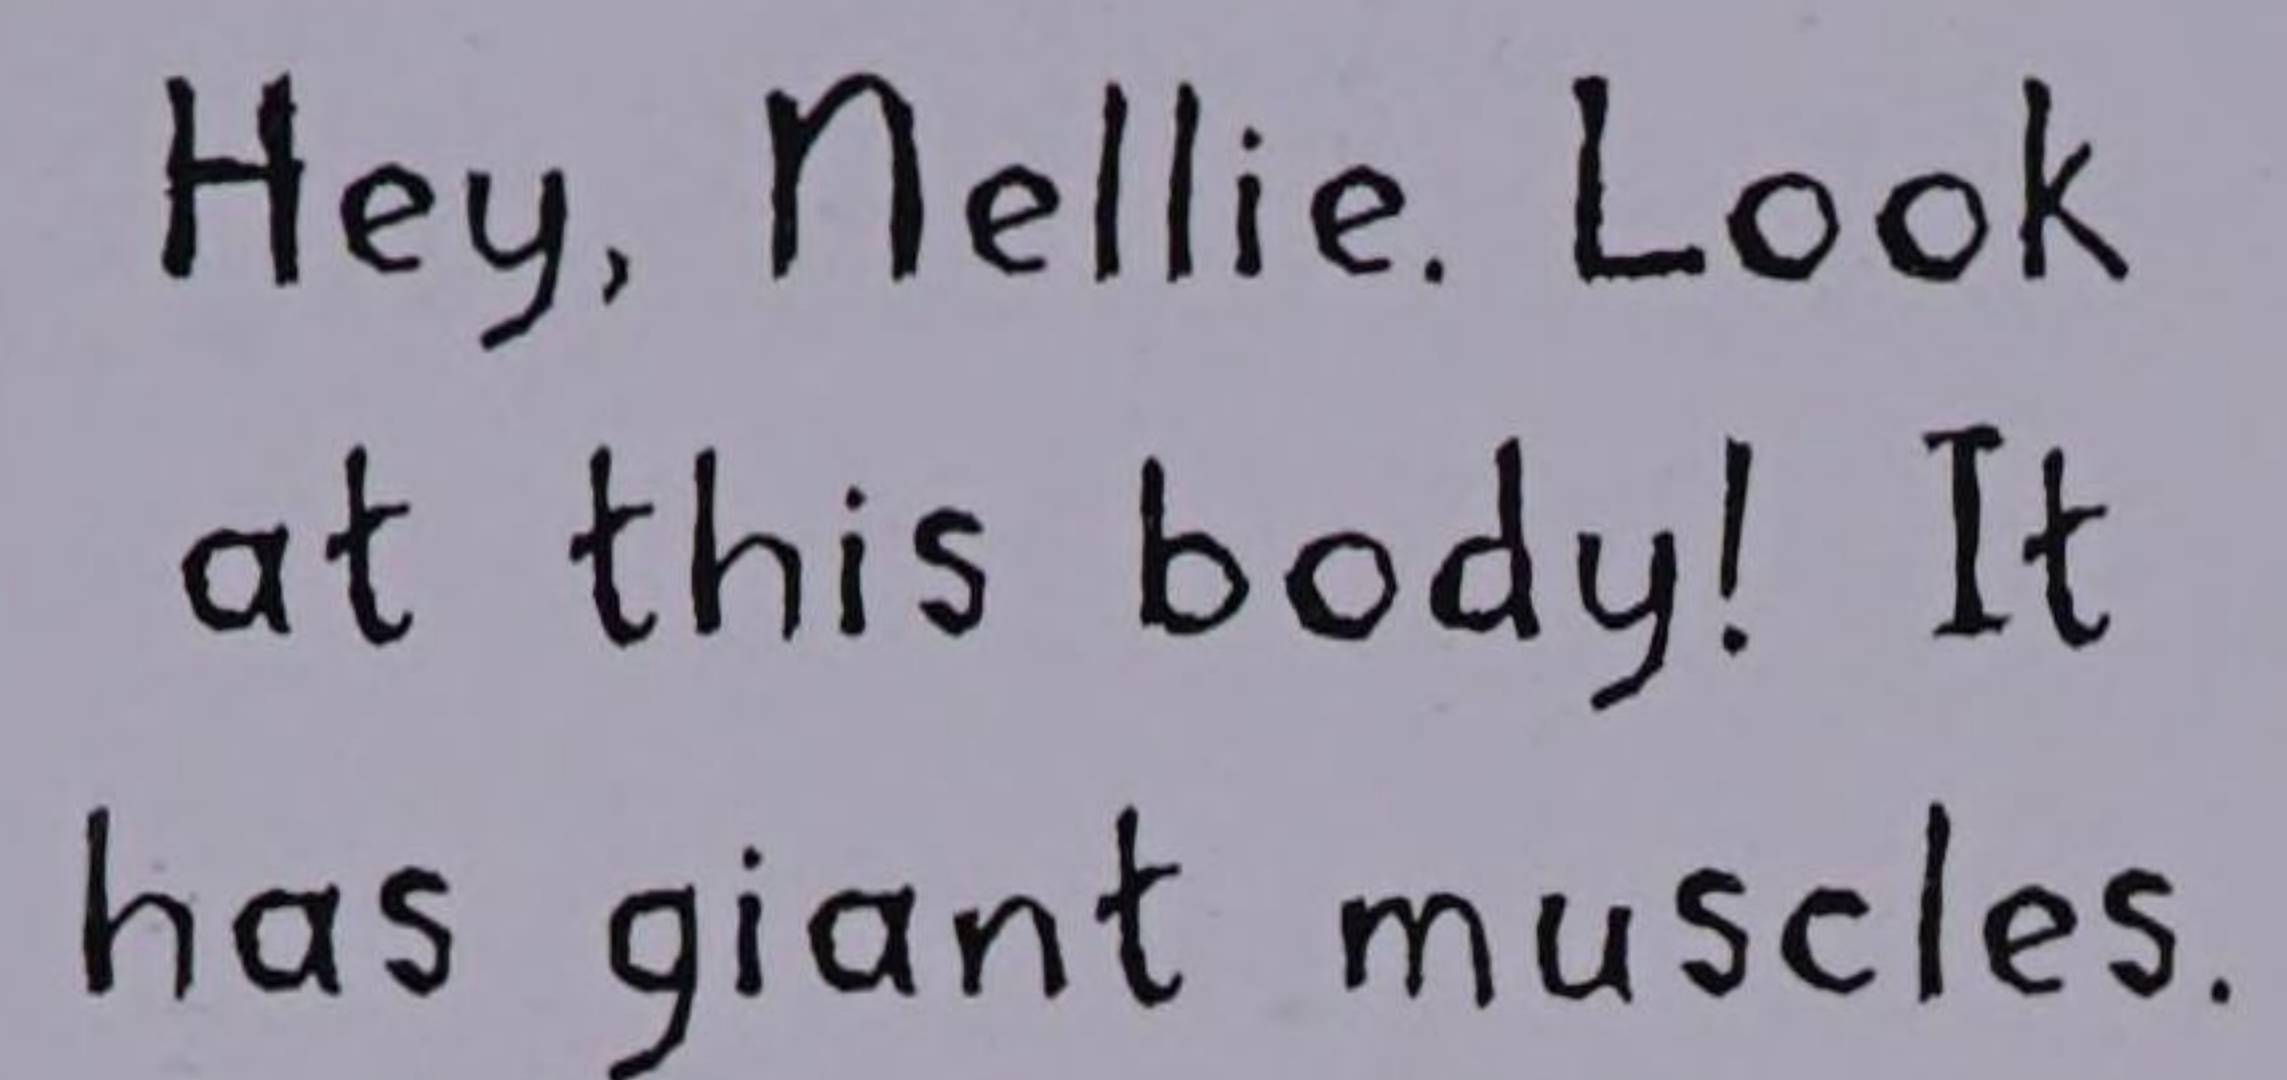 Hey, Nellie. Look
at this body! It
has giant muscles.